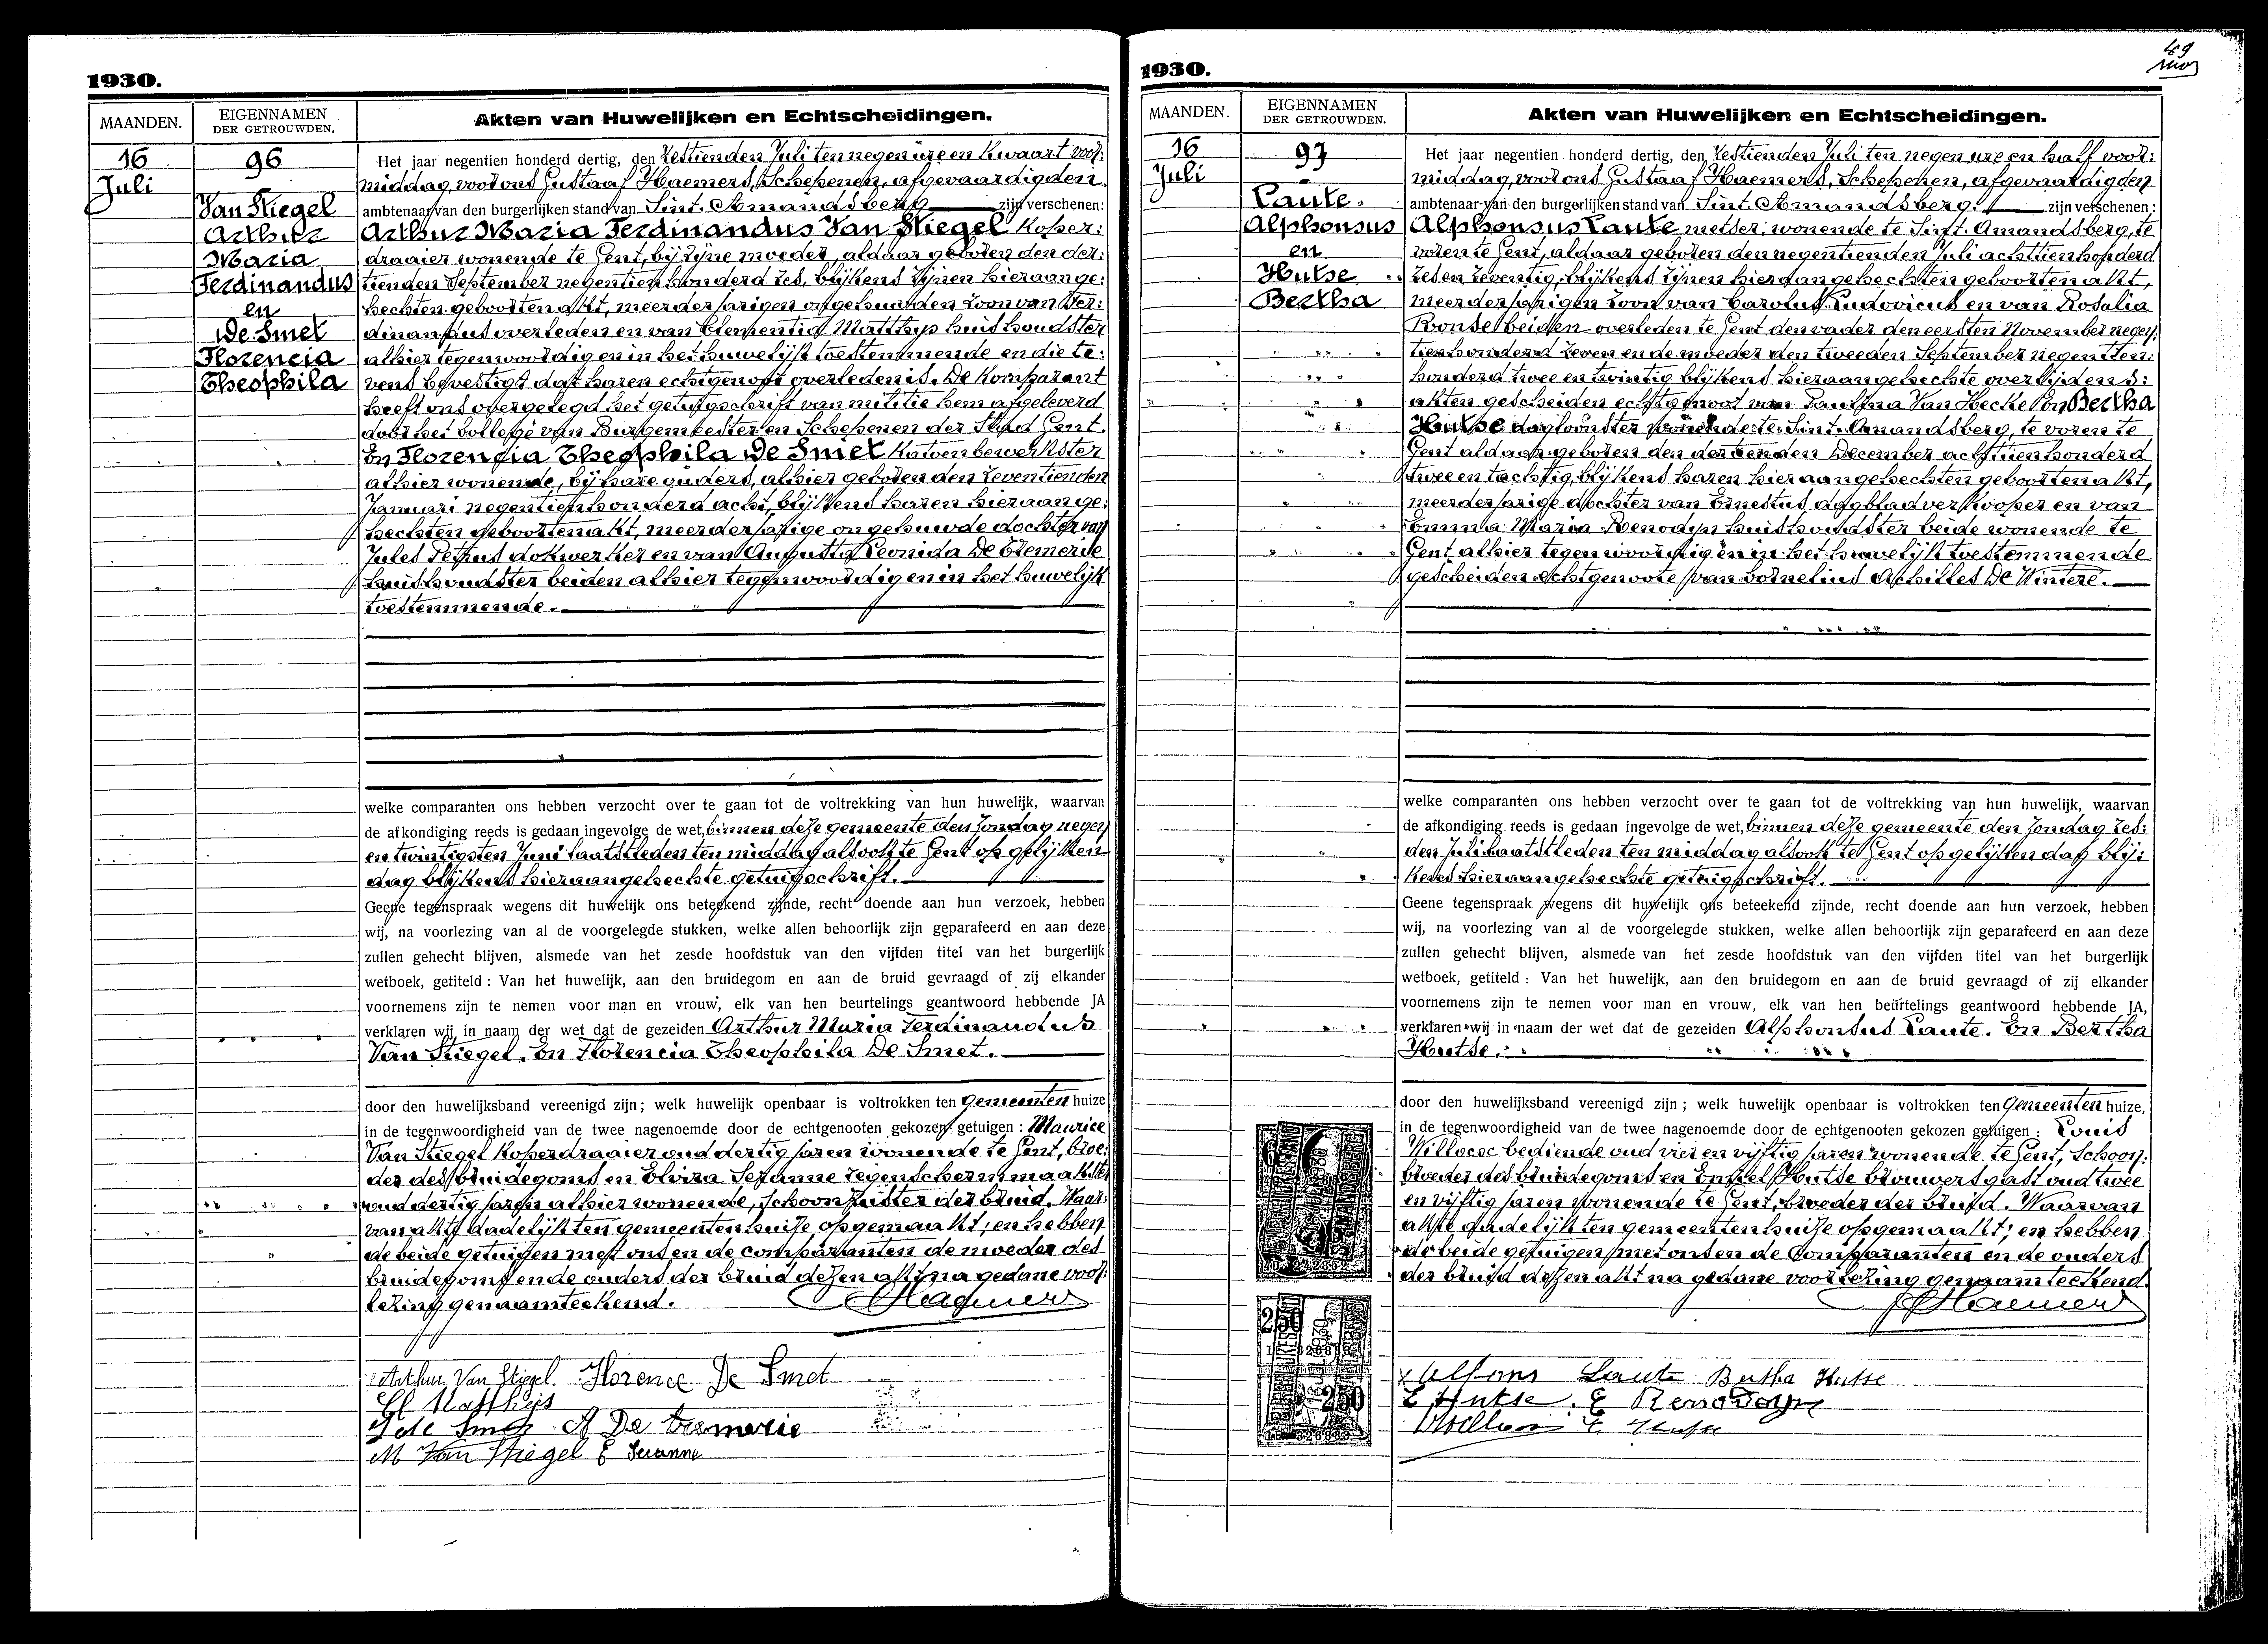 1930.
MAANDEN.
EIGENNAMEN
DER GETROUWDEN.
Akten van Huwelijken en Echtscheidingen.
16
Juli
96
Van Stiegel
Arthur
Maria
Ferdinandus
en
De Smet
Florencia
Theophila
Het jaar negentien honderd dertig, den Zestienden Juli ten negen ure en kwaart voor:
middag, voor ons Gustaaf Haemers, Schepenen, afgevaardigden
ambtenaar van den burgerlijken stand van Sint. Amandsberg zijn verschenen:
Arthur Maria Ferdinandus Van Stiegel koper:
draaier wonende te Gent, bij zijne moeder, aldaar geboren den der:
tienden September negentien honderd zes, blijkens zijnen hieraange:
hechten geboortenakt, meerderjarigen ongehuwden zoon van Fer:
dinandus overleden en van Clementia Matthys huishoudster
alhier tegenwoordig en in het huwelijk toestemmende en die te:
vens bevestigt dat haren echtgenoot overleden is. De komparant
heeft ons overgelegd het getuigschrift van militie hem afgeleverd
door het College van Burgemeester en Schepenen der Stad Gent.
En Florencia Theophila De Smet katoenbewerkster
alhier wonende, bij hare ouders, alhier geboren den zeventienden
Januari negentien honderd acht, blijkens haren hieraange:
hechten geboortenakt, meerderjarige ongehuwde dochter van
Jules Petrus dokwerker en van Augusta Leonida De Cremerie
huishoudster beiden alhier tegenwoordig en in het huwelijk
toestemmende.
welke comparanten ons hebben verzocht over te gaan tot de voltrekking van hun huwelijk, waarvan
de afkondiging reeds is gedaan ingevolge de wet, binnen deze gemeente den Zondag negen
en twintigsten Juni laatstleden ten middag alsook te Gent op gelijken
dag blijkens hieraangehechte getuigschrift.
Geene tegenspraak wegens dit huwelijk ons beteekend zijnde, recht doende aan hun verzoek, hebben
wij, na voorlezing van al de voorgelegde stukken, welke allen behoorlijk zijn geparafeerd en aan deze
zullen gehecht blijven, alsmede van het zesde hoofdstuk van den vijfden titel van het burgerlijk
wetboek, getiteld : Van het huwelijk, aan den bruidegom en aan de bruid gevraagd of zij elkander
voornemens zijn te nemen voor man en vrouw, elk van hen beurtelings geantwoord hebbende JA
verklaren wij in naam der wet dat de gezeiden Arthur Maria Ferdinandus
Van Stiegel. En Florencia Theophila De Smet.
door den huwelijksband vereenigd zijn ; welk huwelijk openbaar is voltrokken ten Gemeenten huize
in de tegenwoordigheid van de twee nagenoemde door de echtgenooten gekozen getuigen : Maurice
Van Stiegel koperdraaier oud dertig jaren wonende te Gent, broe:
der des bruidegoms en Elvira Seranne regenschermmaakster
oud dertig jaren alhier wonende, schoonzuster der bruid. Waar:
van akte dadelijk ten gemeentenhuize opgemaakt; en hebben
de beide getuigen met ons en de comparanten de moeder des
bruidegoms en de ouders der bruid dezen akt na gedane voor:
lezing genaamteekend. Haemers
Arthur Van Stiegel Florence De Smet
Cl Matthijs
J de Smet A De Cremerie
M Van Stiegel E Seranne
1930.
49
MAANDEN.
EIGENNAMEN
DER GETROUWDEN.
Akten van Huwelijken en Echtscheidingen.
16
Juli
97
Laute.
Alphonsus
en
Hutse
Bertha
Het jaar negentien honderd dertig, den Zestienden Juli ten negen ure en half voor:
middag, voor ons Gustaaf Haemers, Schepenen, afgevaardigden
ambtenaar van den burgerlijken stand van Sint. Amandsberg. zijn verschenen :
Alphonsus Laute metser, wonende te Sint. Amandsberg, te
voren te Gent, aldaar geboren den negentienden Juli achttien honderd
zes en zeventig, blijkens zijnen hieraangehechten geboortenakt,
meerderjarigen zoon van Carolus Ludovicus en van Rosalia
Ronse beiden overleden te Gent den vader den eersten November negen:
tien honderd zeven en de moeder den tweeden September negentien:
honderd twee en twintig blijkens hieraangehechte overlijdens:
akten gescheiden echtgenoot van Paulina Van Hecke. En Bertha
Hutse dagloonster wonende te Sint. Amandsberg, te voren te
Gent aldaar geboren den dertienden December achttien honderd
twee en tachtig, blijkens haren hieraangehechten geboortenakt,
meerderjarige dochter van Ernestus dagbladverkooper en van
Emma Maria Renodyn huishoudster beide wonende te
Gent alhier tegenwoordig en in het huwelijk toestemmende
gescheiden echtgenoote van Cornelius Achilles De Wintere.
welke comparanten ons hebben verzocht over te gaan tot de voltrekking van hun huwelijk, waarvan
de afkondiging reeds is gedaan ingevolge de wet, binnen deze gemeente den Zondag zes:
den Juli laatstleden ten middag alsook te Gent op gelijken dag blij:
kens hieraangehechte getuigschrift.
Geene tegenspraak wegens dit huwelijk ons beteekend zijnde, recht doende aan hun verzoek, hebben
wij, na voorlezing van al de voorgelegde stukken, welke allen behoorlijk zijn geparafeerd en aan deze
zullen gehecht blijven, alsmede van het zesde hoofdstuk van den vijfden titel van het burgerlijk
wetboek, getiteld : Van het huwelijk, aan den bruidegom en aan de bruid gevraagd of zij elkander
voornemens zijn te nemen voor man en vrouw, elk van hen beurtelings geantwoord hebbende JA,
verklaren wij in naam der wet dat de gezeiden Alphonsus Laute. En Bertha
Hutse.
door den huwelijksband vereenigd zijn ; welk huwelijk openbaar is voltrokken ten Gemeenten huize,
in de tegenwoordigheid van de twee nagenoemde door de echtgenooten gekozen getuigen : Louis
Willococ bediende oud vier en vijftig jaren wonende te Gent, schoon:
broeder des bruidegoms en Hutse brouwersgast oud twee
en vijftig jaren wonende te Gent, broeder der bruid. Waarvan
akte dadelijk ten gemeentenhuize opgemaakt; en hebben
de beide getuigen met ons en de Comparanten en de ouders
der bruid dezen akt na gedane voorlezing genaamteekend.
Haemers
Alfons Laute Bertha Hutse
E Hutse. E Renodeyn
E Hutse